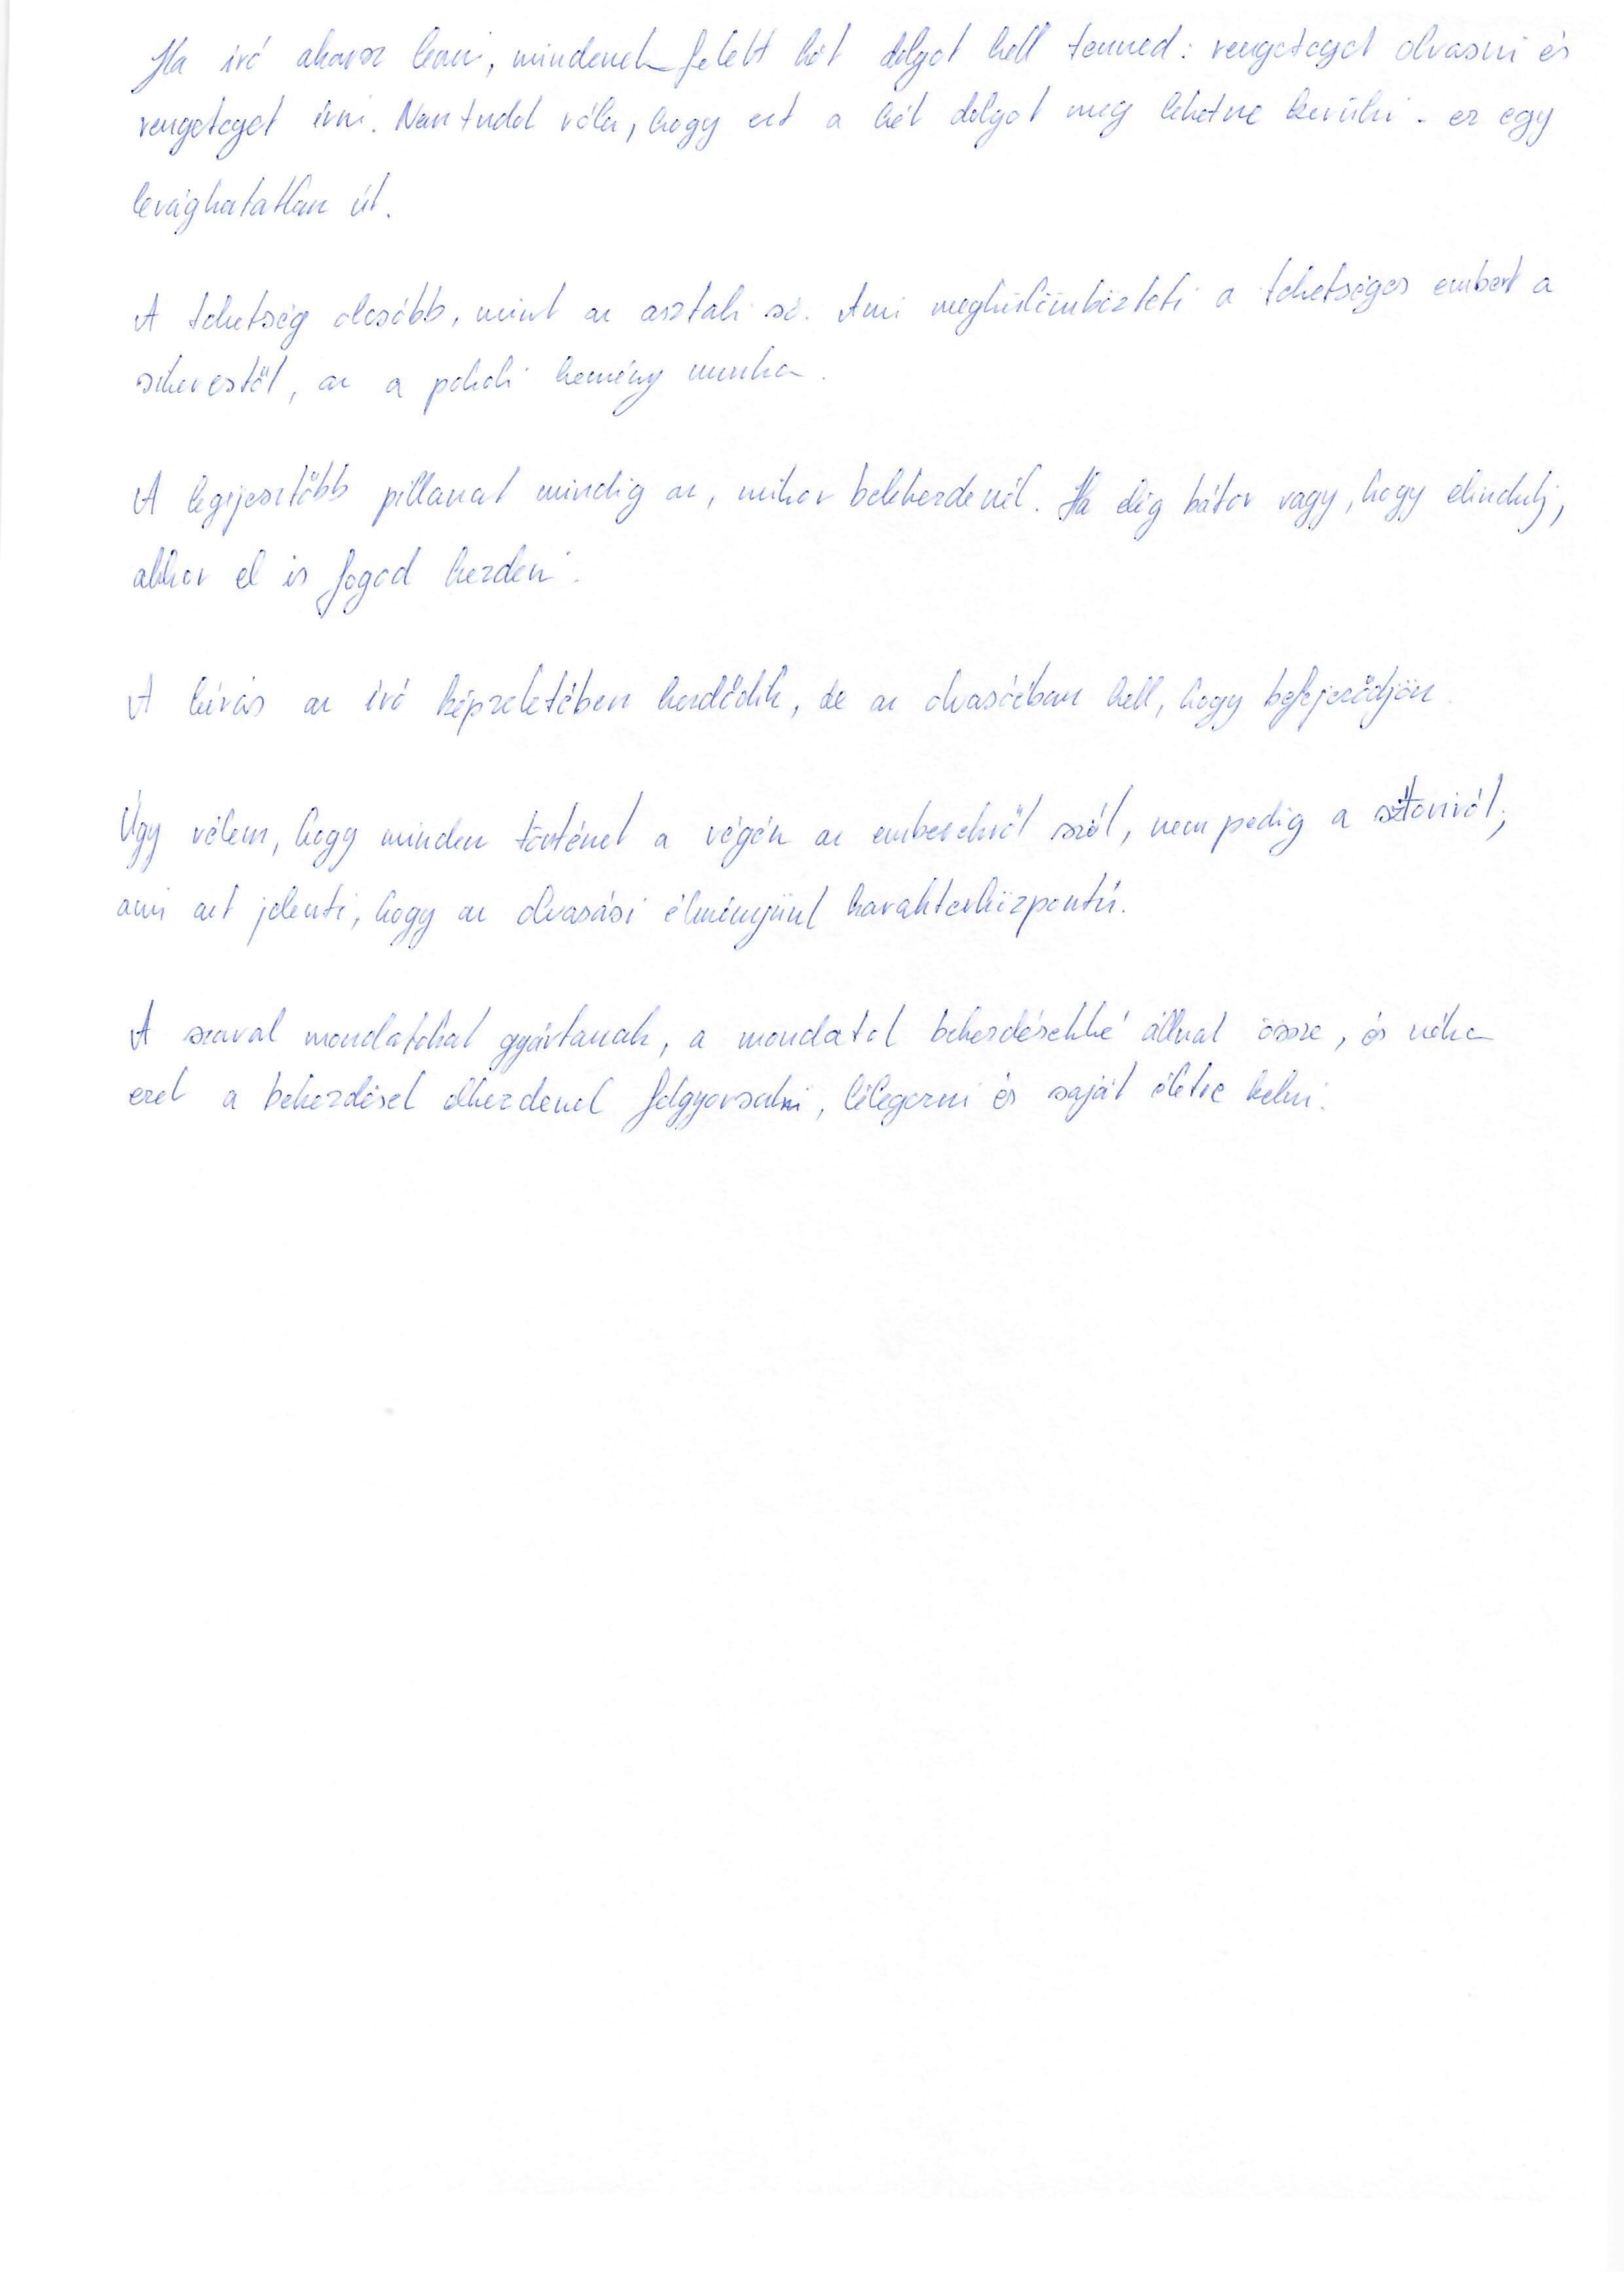 Ha író akarsz lenni, mindenek felett két dolgot kell tenned: rengeteget olvasni és
rengeteget írni. Nem tudok róla, hogy ezt a két dolgot meg lehetne kerülni - ez egy
levághatatlan út.
A tehetség olcsóbb, mint az asztali só. Ami megkülömbözteti a tehetséges embert a
sikerestől, az a pokoli kemény munka.
A legijesztőbb pillanat mindig az, mikor belekezdenél. Ha elég bátor vagy, hogy elindulj,
akkor el is fogod kezdeni.
A leírás az író képzeletében kezdődik, de az olvasóéban kell, hogy befejeződjön
Úgy vélem, hogy minden történet a végén az emberekről szól, nem pedig a sztoriról;
ami azt jelenti, hogy az olvasási élményünk karakterközpontú.
A szavak mondatokat gyártanak, a mondatok bekezdésekké állnak össze, és néha
ezek a bekezdések elkezdenek felgyorsulni, lélegezni és saját életre kelni.